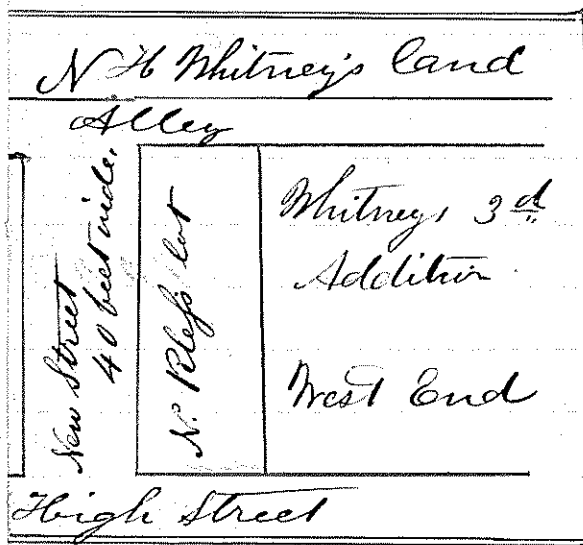 N. H Whitney's land
Alley
New Street
40 feet wide,
N. Klefs lot
Whitneys 3d
Addition
West End
High Street